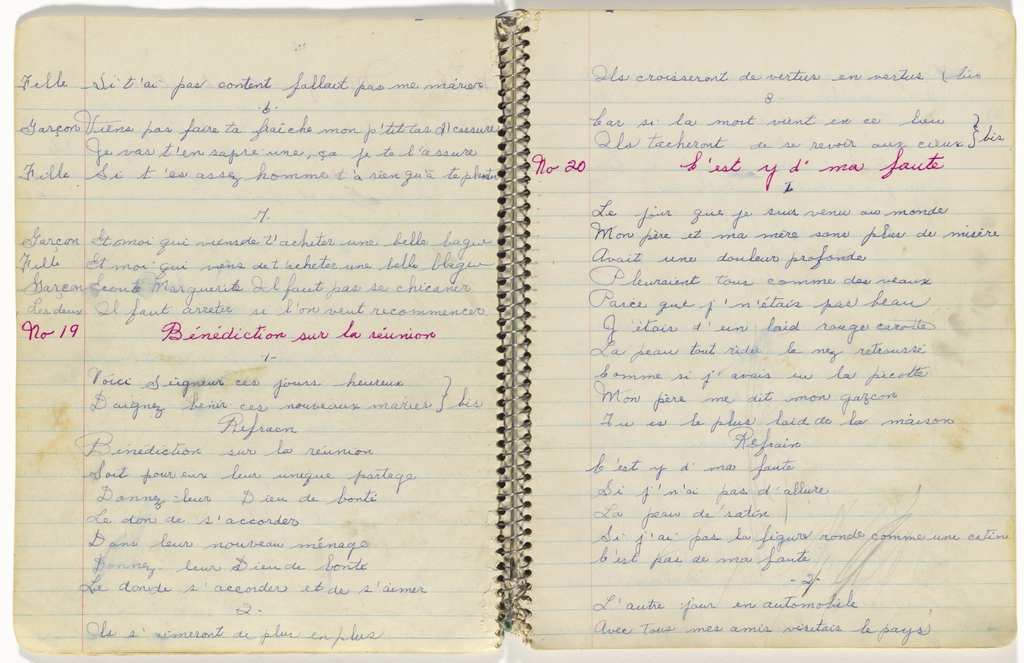 Fille Si t'ai pas content fallait pas me marier
6.
Garçon Viens pas faire ta fraîche mon p'tit tas d'cassure
Je vas t'en sapré une, ça je te l'assure
Fille Si t'es assez homme t'a rien qu'à te planter
7.
Garçon Et moi qui viens de t'acheter une belle bague
Fille Et moi qui viens de t'acheter une belle blague
Garçon Ecoute Marguerite Il faut pas se chicaner
Les deux Il faut arreter si l'on veut recommencer
No 19 Bénédiction sur la réunion
-1-
Voici Seigneur ces jours heureux
Daignez benir ces nouveaux maries } bis
Refraen
Bénédiction sur la réunion
Soit pour eux leur unique partage
Donnez-leur Dieu de bonté
Le don de s'accorder
Dans leur nouveau ménage
Donnez-leur Dieu de bonté
Le don de s'accorder et de s'aimer
-2-
Ils s'aimeront de plus en plus
Ils croisseront de vertus en vertus (bis
3
Car si la mort vient en ce lieu
Ils tacheront de se revoir aux cieux } bis
No 20 C'est y d'ma faute
I
Le jour que je suis venu au monde
Mon père et ma mère sans plus de misère
Avait une douleur profonde
Pleuraient tous comme des veaux
Parce que j'n'étais pas beau
J'étais d'un laid rouge carotte
La peau tout ridée le nez retroussé
Comme si j'avais eu la picotte
Mon père me dit mon garçon
Tu es le plus laid de la maison
Refrain
C'est y d'ma faute
Si j'n'ai pas d'allure
La peau de satin
Si j'ai pas la figure ronde comme une catin
C'est pas de ma faute
-2-
L'autre jour en automobile
Avec tous mes amis visitais le pays